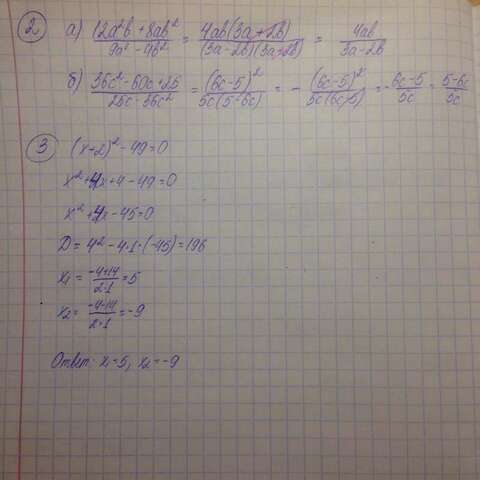 2 а) (12a²b + 8ab²)/(9a² - 4b²) = 4ab(3a+2b)/((3a-2b)(3a+2b)) = 4ab/(3a-2b)
б) (36c² - 60c + 25)/(25c - 36c²) = (6c-5)²/(5c(5-6c)) = - (6c-5)²/(5c(6c-5)) = - (6c-5)/5c = (5-6c)/5c
3 (x+2)² - 49 = 0
x² + 4x + 4 - 49 = 0
x² + 4x - 45 = 0
D = 4² - 4·1·(-45) = 196
x₁ = (-4+14)/(2·1) = 5
x₂ = (-4-14)/(2·1) = -9
Ответ: x₁ = 5, x₂ = -9